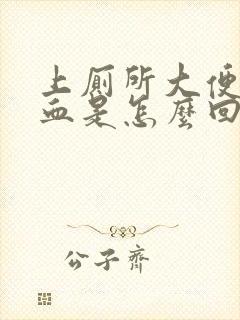 上厕所大便
血是怎麼回
公子齊